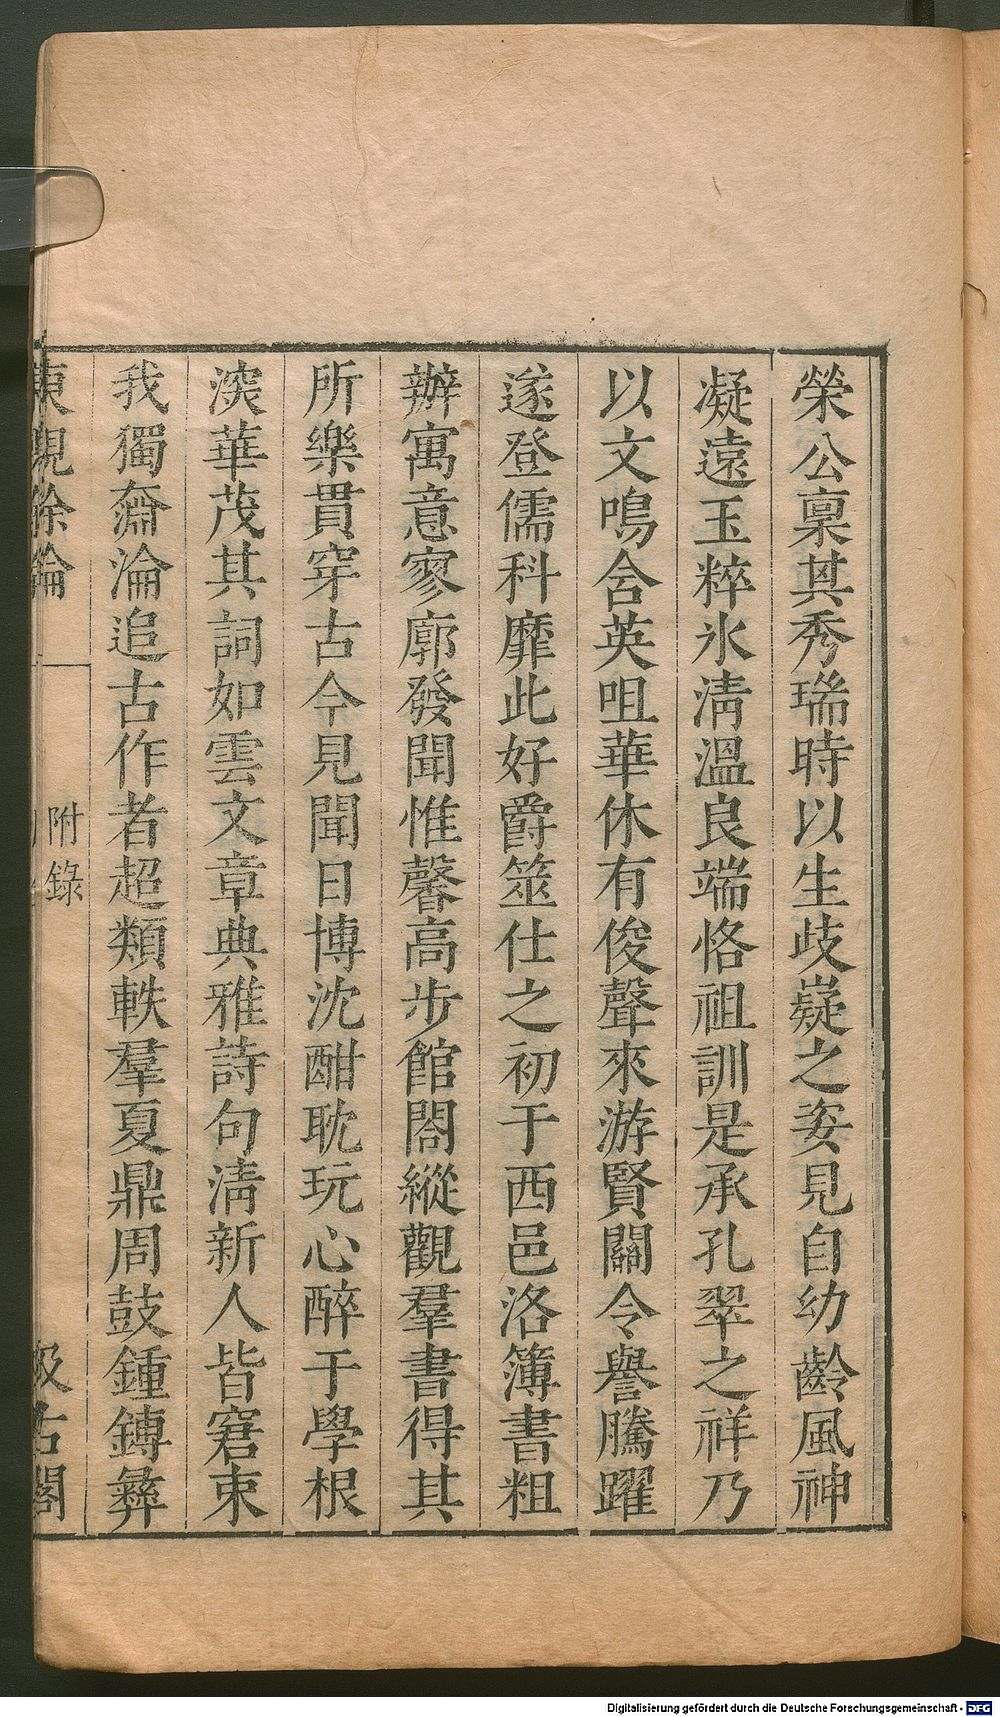 榮公稟其秀瑞時以生歧嶷之姿見自幼齡風神
凝遠玉粹氷淸溫良端恪祖訓是承孔翠之祥乃
以文鳴含英咀華休有俊聲來游賢關令譽騰躍
遂登儒科靡此好爵筮仕之初于西邑洛簿書粗
辦寓意寥廓發聞惟馨高步館閣縱觀羣書得其
所樂貫穿古今見聞日博沈酣耽玩心醉于學根
深華茂其詞如雲文章典雅詩句淸新人皆窘束
我獨奫淪追古作者超類軼羣夏鼎周鼓鍾鎛彝
東觀餘論
附錄
汲古閣
Digitalisierung gefördert durch die Deutsche Forschungsgemeinschaft - DFG